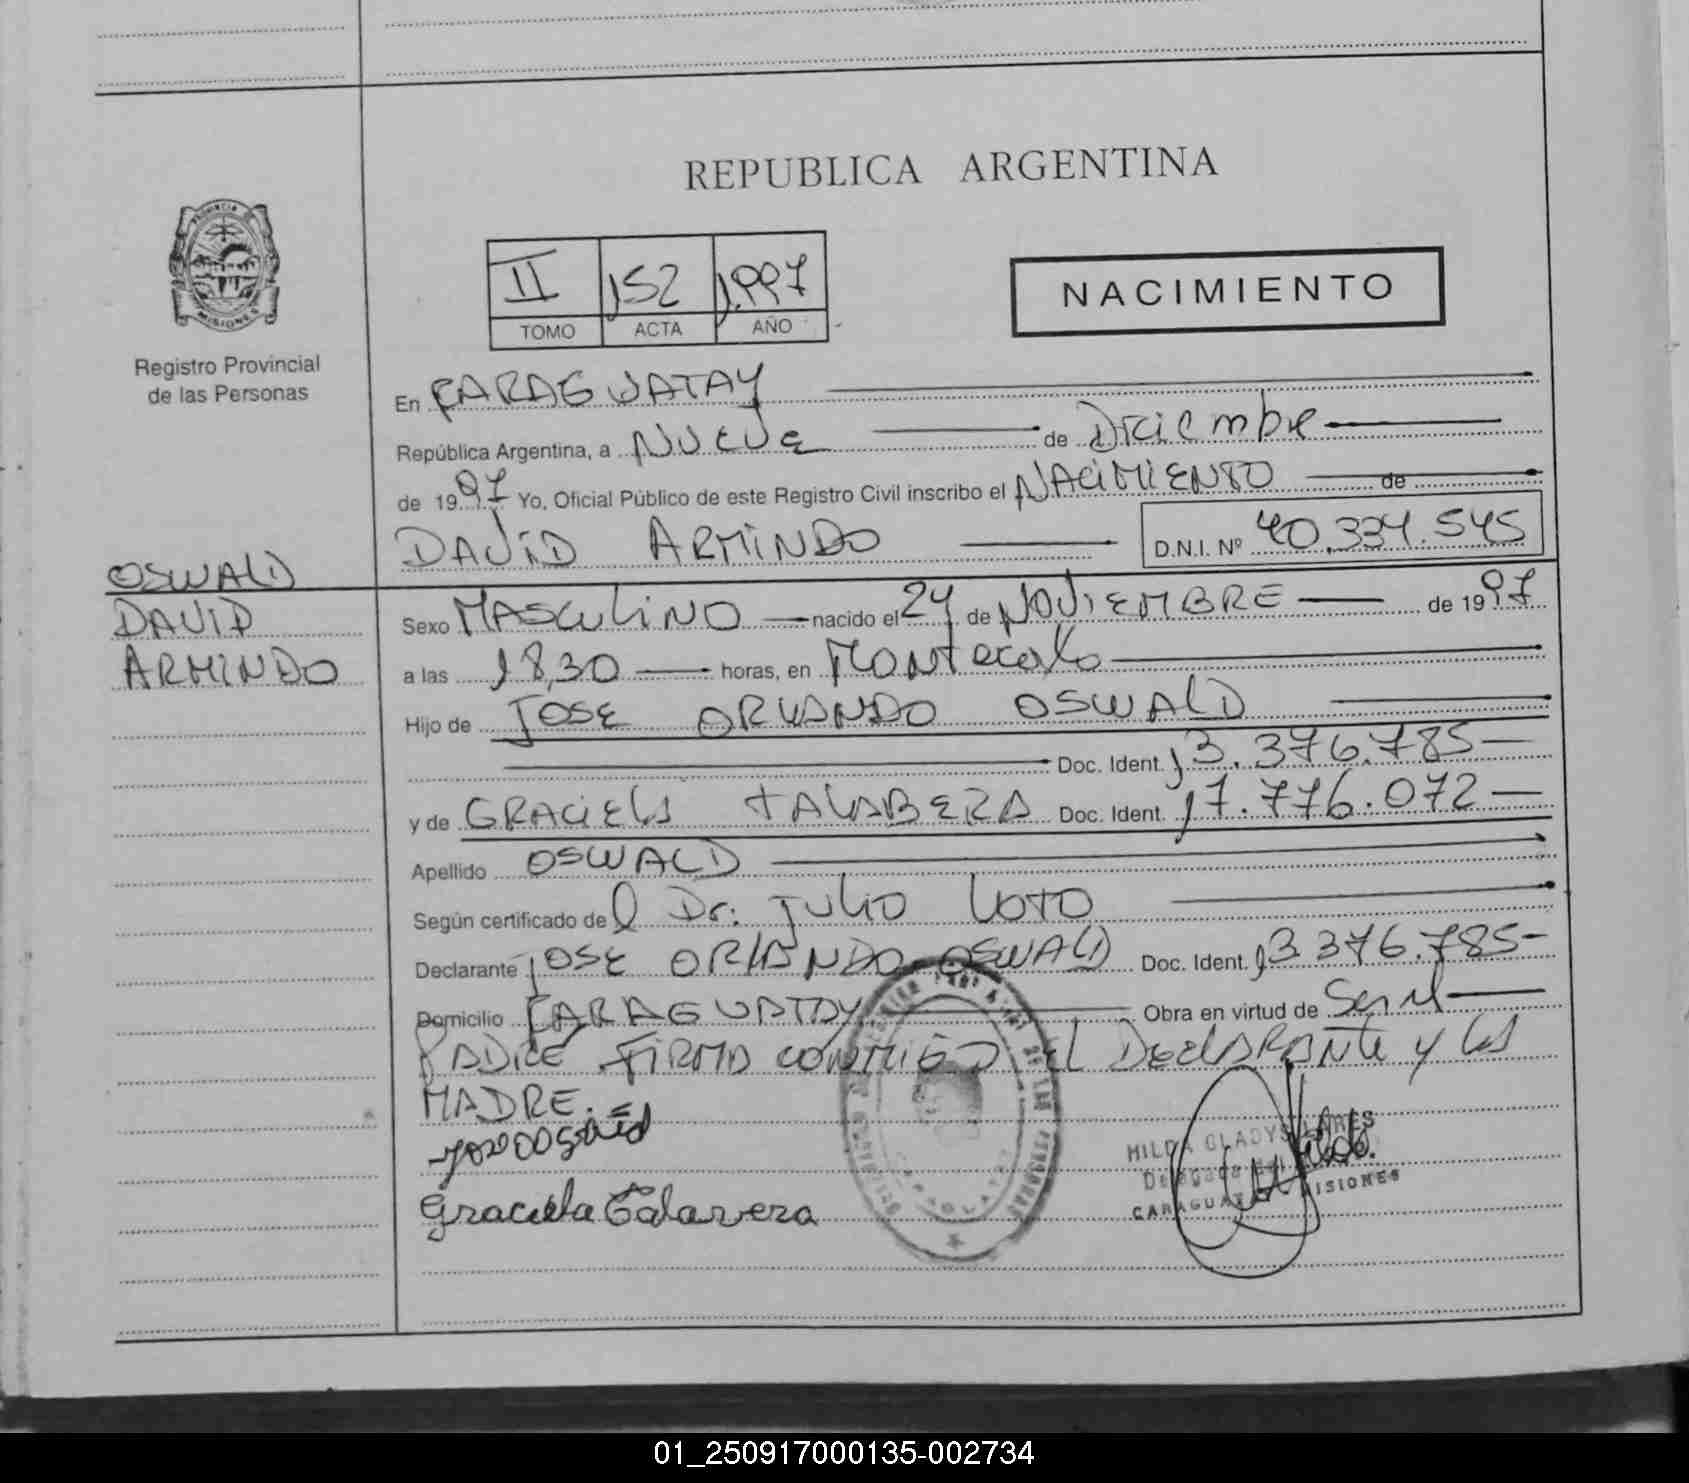 REPUBLICA ARGENTINA
PROVINCIA DE
MISIONES
Registro Provincial
de las Personas
II 152 1.997
TOMO ACTA AÑO
NACIMIENTO
En CARAGUATAY
República Argentina, a NUEVE de Diciembre
de 1997 Yo, Oficial Público de este Registro Civil inscribo el NACIMIENTO de
DAVID ARMINDO D.N.I. Nº 40.334.545
OSWALD
DAVID
ARMINDO
Sexo MASCULINO nacido el 24 de NOVIEMBRE de 1997
a las 18,30 horas, en Montecarlo
Hijo de JOSE ORLANDO OSWALD
Doc. Ident. 13.376.785
y de GRACIELA TALABERA Doc. Ident. 17.776.072
Apellido OSWALD
Según certificado de l Dr: JULIO LOTO
Declarante JOSE ORLANDO OSWALD Doc. Ident. 13.376.785
Domicilio CARAGUATAY Obra en virtud de Ser el
PADRE FIRMA CONMIGO EL DECLARANTE y LA
MADRE.
Graciela Talavera
HILDA GLADYS LARES
Delegada
CARAGUATAY MISIONES
01_250917000135-002734